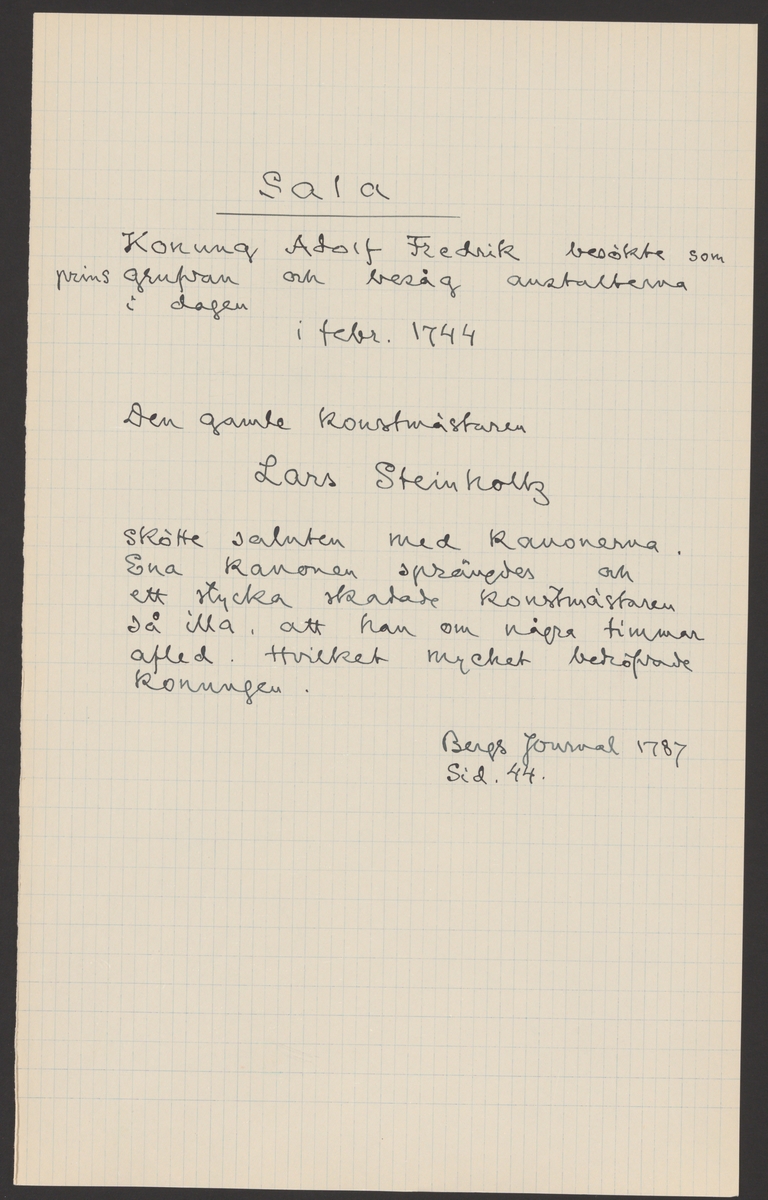 Sala
Konung Adolf Fredrik besökte som
prins grufvan och besåg anstalterna
i dagen
i febr. 1744
Den gamle konstmästaren
Lars Steinholtz
skötte saluten med kanonerna.
Ena kanonen sprängdes och
ett stycka skadade konstmästaren
så illa, att han om några timmar
afled. Hvilket mycket bedröfvade
konungen.
Bergs Journal 1787
Sid. 44.